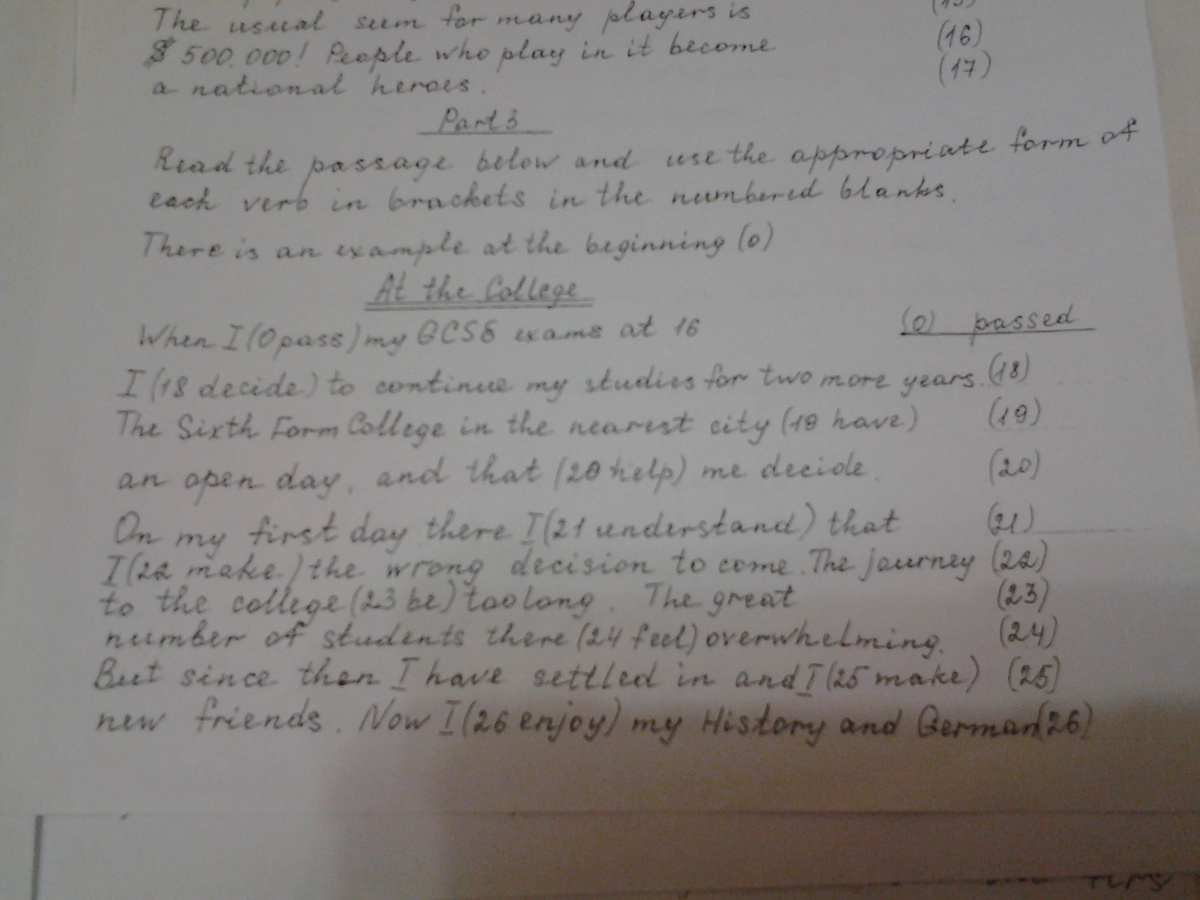 The usual sum for many players is
(15)
$ 500,000! People who play in it become (16)
a national heroes. (17)
Part 3
Read the passage below and use the appropriate form of
each verb in brackets in the numbered blanks.
There is an example at the beginning (0)
At the College
When I (0 pass) my GCSE exams at 16 (0) passed
I (18 decide) to continue my studies for two more years. (18)
The Sixth Form College in the nearest city (19 have) (19)
an open day, and that (20 help) me decide. (20)
On my first day there I (21 understand) that (21)
I (22 make) the wrong decision to come. The journey (22)
to the college (23 be) too long. The great (23)
number of students there (24 feel) overwhelming. (24)
But since then I have settled in and I (25 make) (25)
new friends. Now I (26 enjoy) my History and German (26)